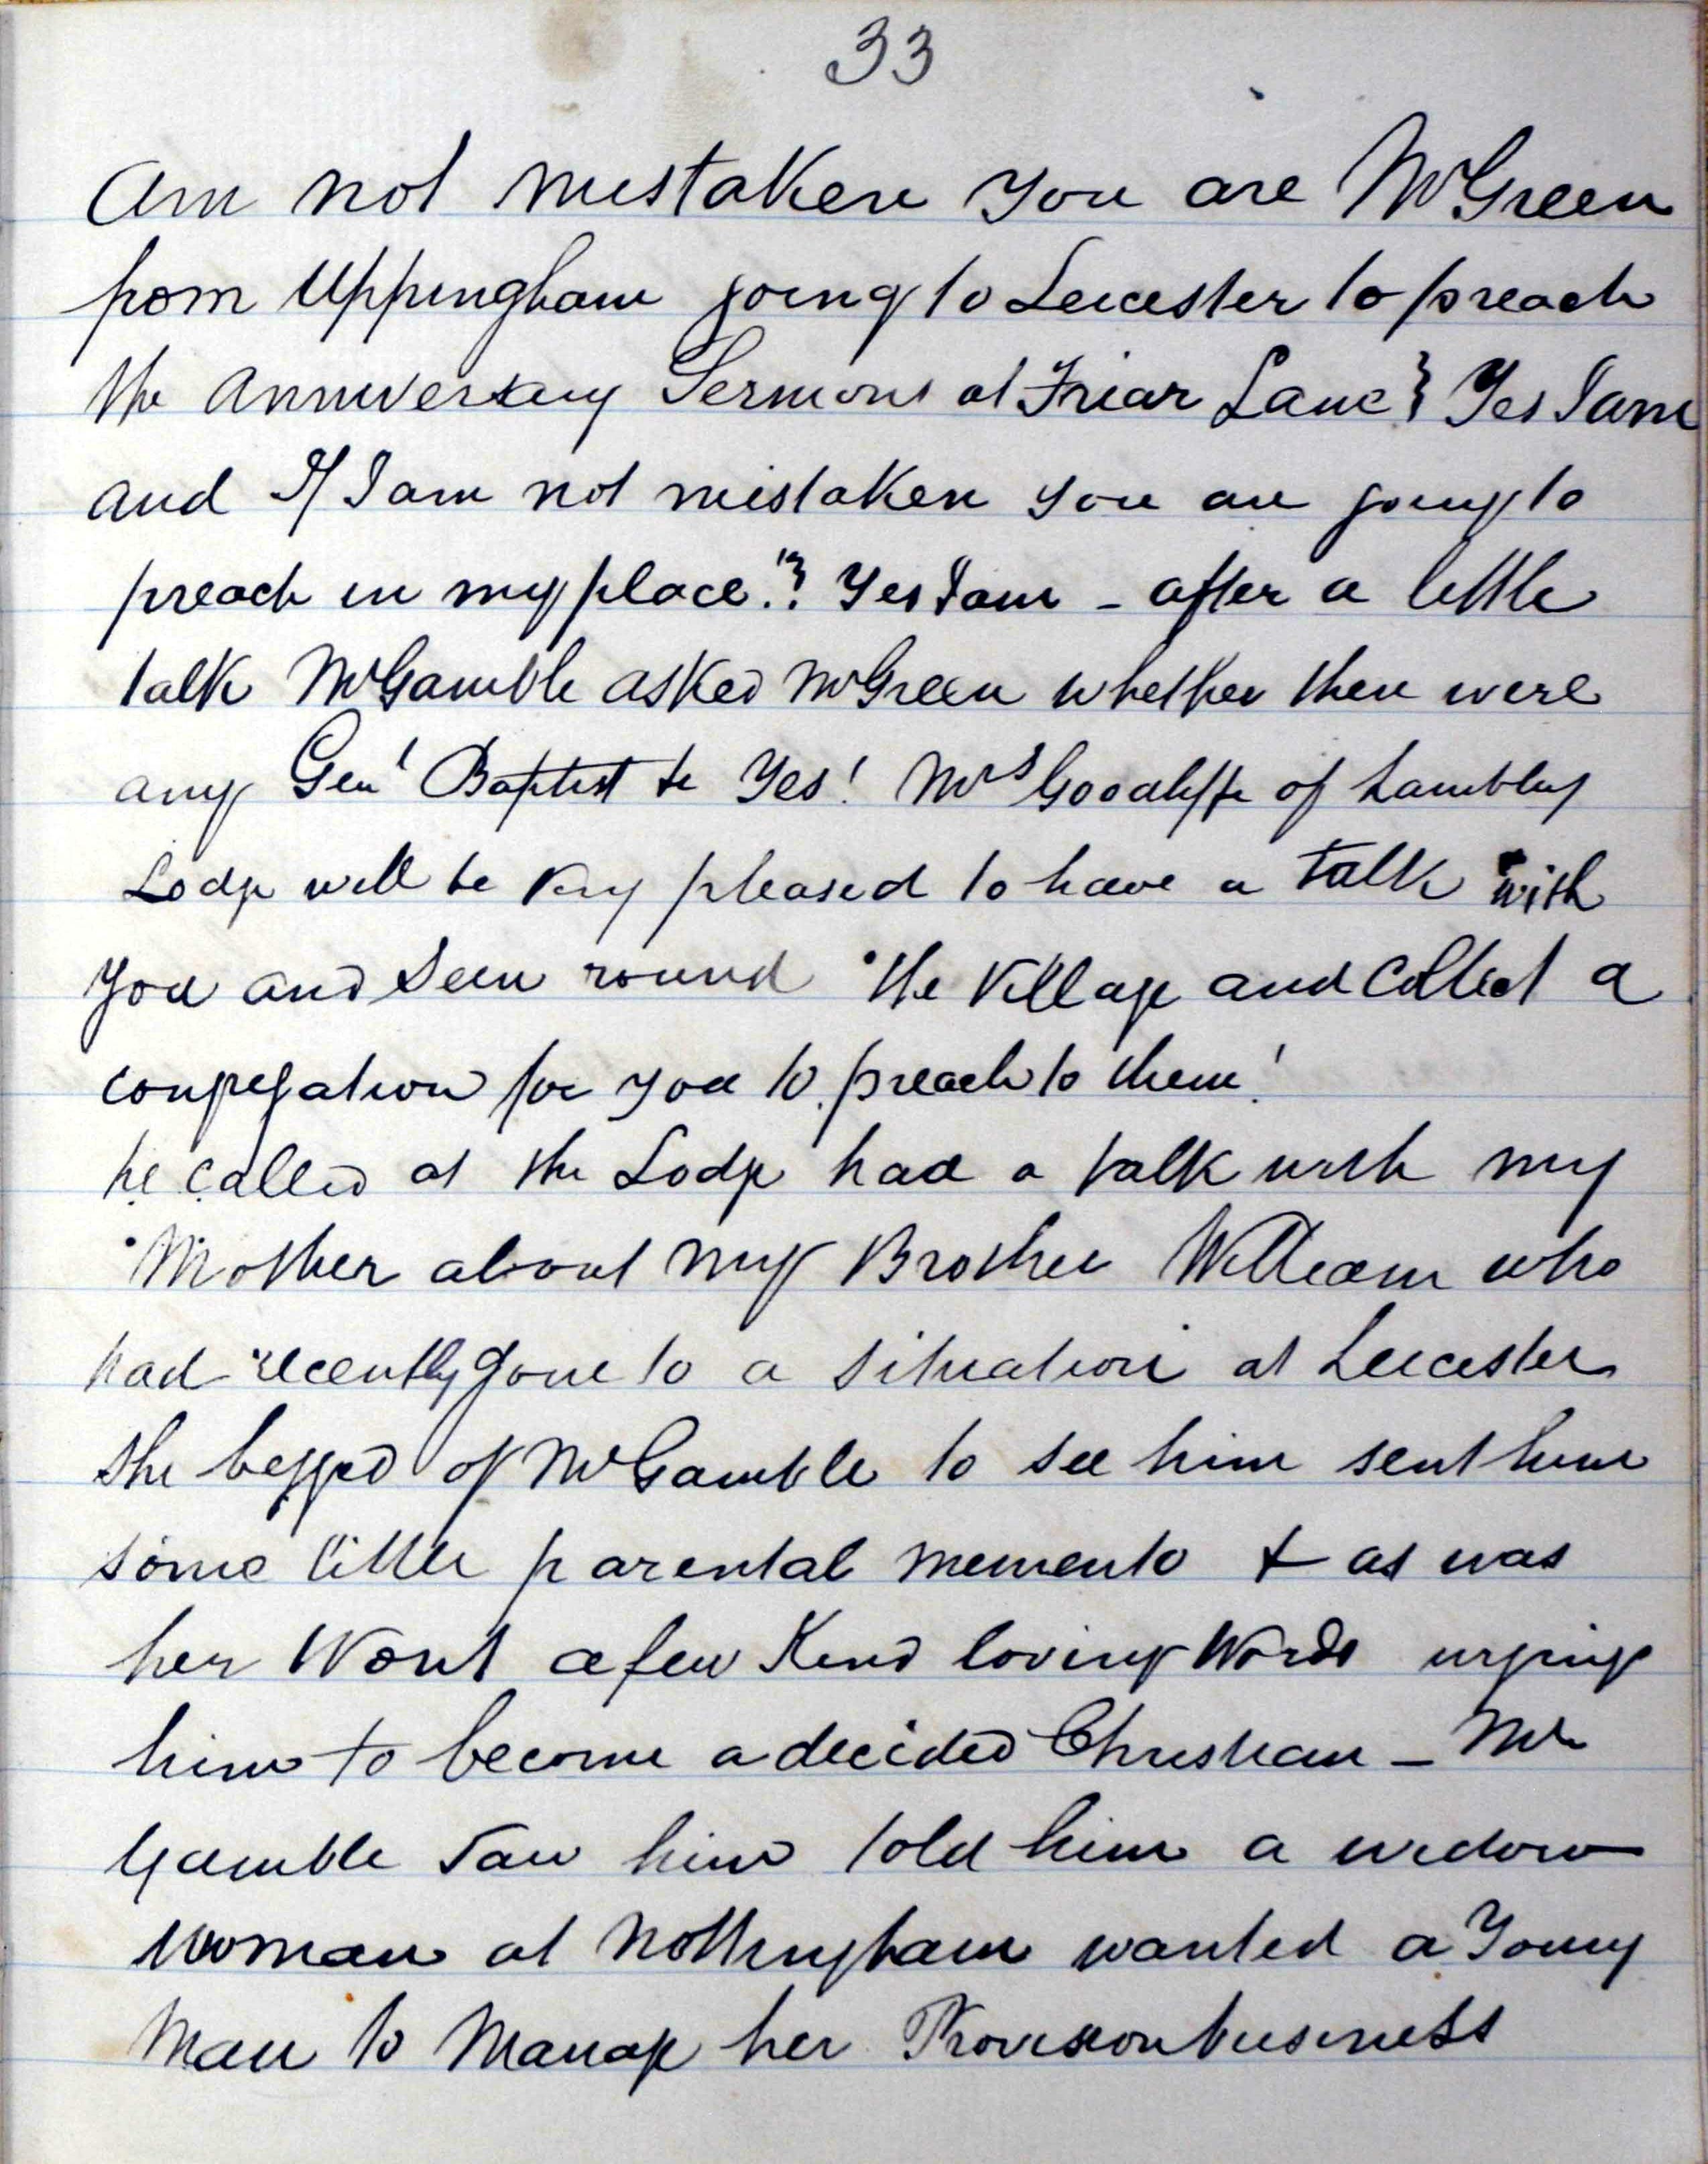 33
Am not mistaken you are Mr Green
from Uppingham going to Leicester to preach
the Anniversary Sermons at Friar Lane} Yes I am
and If I am not mistaken you are going to
preach in my place!? Yes I am – after a little
talk Mr Gamble asked Mr Green whether there were
any Genl Baptist Yes! Mrs Goodliffe of Lambley
Lodge will be very pleased to have a talk with
you and round the Village and collect a
congregation for you to preach to them!
he called at the Lodge had a talk with my
Mother about my Brother William who
had recently gone to a situation at Leicester
she begged of Mr Gamble to see him sent him
some little parental memento & as was
her wont a few Kind loving Words urging
him to become a decided Christian – Mr
Gamble saw him told him a widow
woman at Nottingham wanted a Young
Man to Manage her Provision business